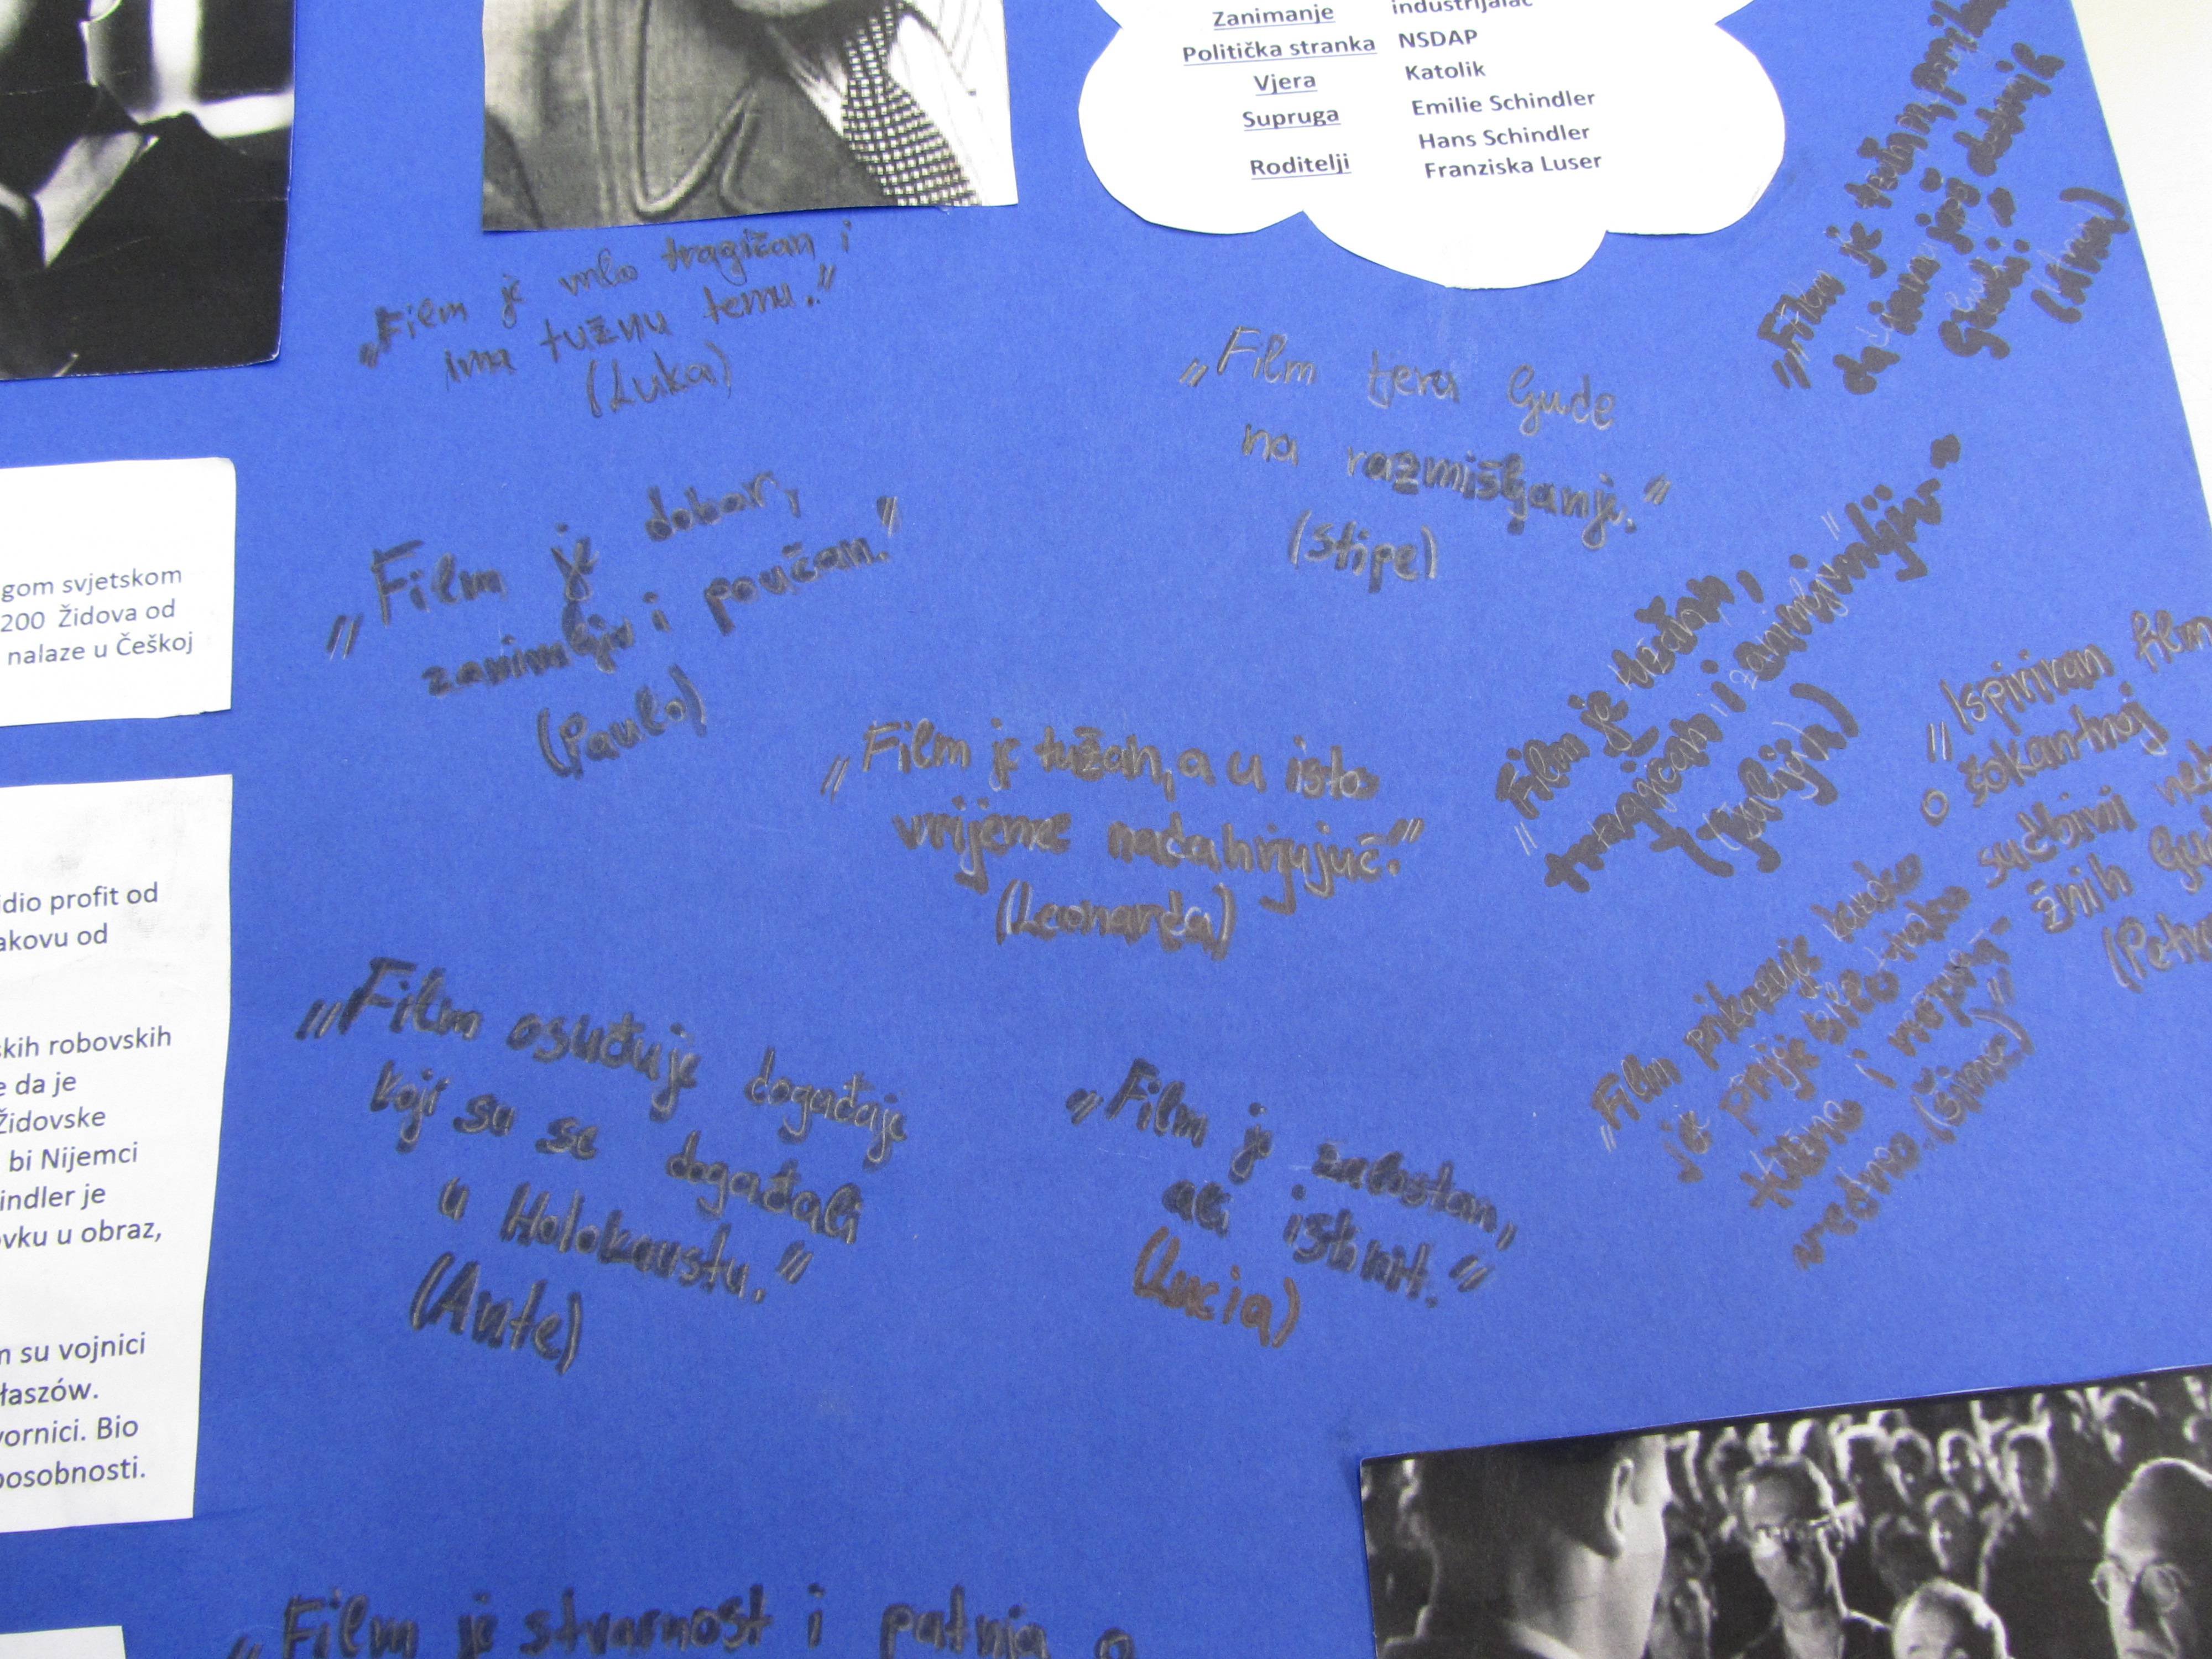 Zanimanje industrijalac
Politička stranka NSDAP
Vjera Katolik
Supruga Emilie Schindler
Hans Schindler
Roditelji Franziska Luser
„Film je vrlo tragičan i
ima tužnu temu.”
(Luka)
„Film tjera ljude
na razmišljanje.”
(Stipe)
„Film je težan,
da ima još
(Ana)
„Film je dobar,
zanimljiv i poučan.”
(Paulo)
gom svjetskom
200 Židova od
nalaze u Češkoj
„Film je tužan,
tragičan i zanimljiv”
„Film je tužan, a u isto
vrijeme nadahnjujuć.”
(Leonarda)
„Ispiriran film
o šokantnoj
sudbini
žnih
„Film prikazuje kako
je prije bilo jako
tužno i neprav-
vedno.” (Šime)
idio profit od
akovu od
skih robovskih
e da je
Židovske
bi Nijemci
indler je
ovku u obraz,
m su vojnici
łaszów.
vornici. Bio
posobnosti.
„Film osuđuje događaje
koji su se događali
u Holokaustu.”
(Ante)
„Film je žalostan,
ali istinit.”
(Lucia)
„Film je stvarnost i patnja o